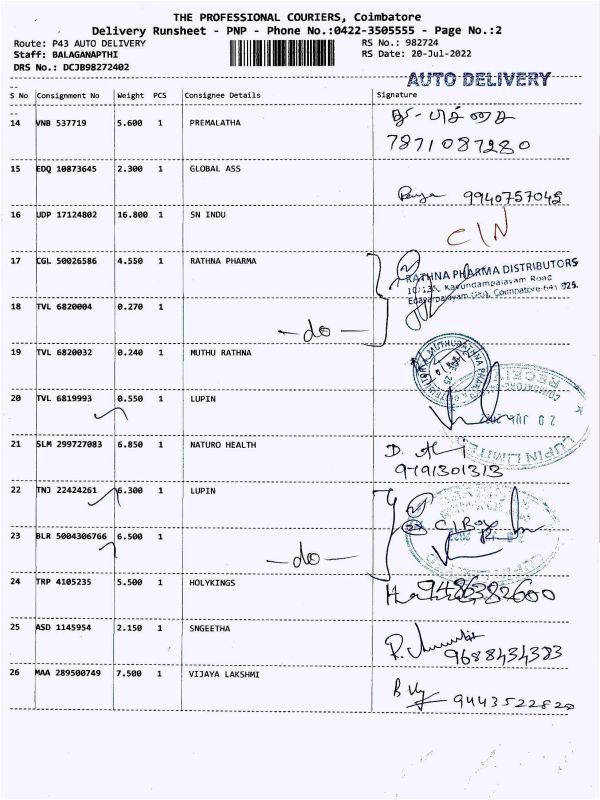 THE PROFESSIONAL COURIERS, Coimbatore
Delivery Runsheet - PNP - Phone No.:0422-3505555 - Page No.:2
Route: P43 AUTO DELIVERY RS No.: 982724
Staff: BALAGANAPTHI RS Date: 20-Jul-2022
DRS No.: DCJB98272402
AUTO DELIVERY
S No Consignment No Weight PCS Consignee Details Signature
14 VNB 537719 5.600 1 PREMALATHA
7871087280
15 EDQ 10873645 2.300 1 GLOBAL ASS
9940757045
16 UDP 17124802 16.800 1 SN INDU
C/N
17 CGL 50026586 4.550 1 RATHNA PHARMA
RATHNA PHARMA DISTRIBUTORS
Kavundampalayam Road
Coimbatore-641 025.
18 TVL 6820004 0.270 1
-do-
19 TVL 6820032 0.240 1 MUTHU RATHNA
20 TVL 6819993 0.550 1 LUPIN
RECEIVED
20 JUL 2022
LUPIN LIMITED
21 SLM 299727083 6.850 1 NATURO HEALTH
9791301313
22 TNJ 22424261 6.300 1 LUPIN
23 BLR 5004306766 6.500 1
-do-
24 TRP 4105235 5.500 1 HOLYKINGS
9486382600
25 ASD 1145954 2.150 1 SNGEETHA
9688434383
26 MAA 289500749 7.500 1 VIJAYA LAKSHMI
9443522820